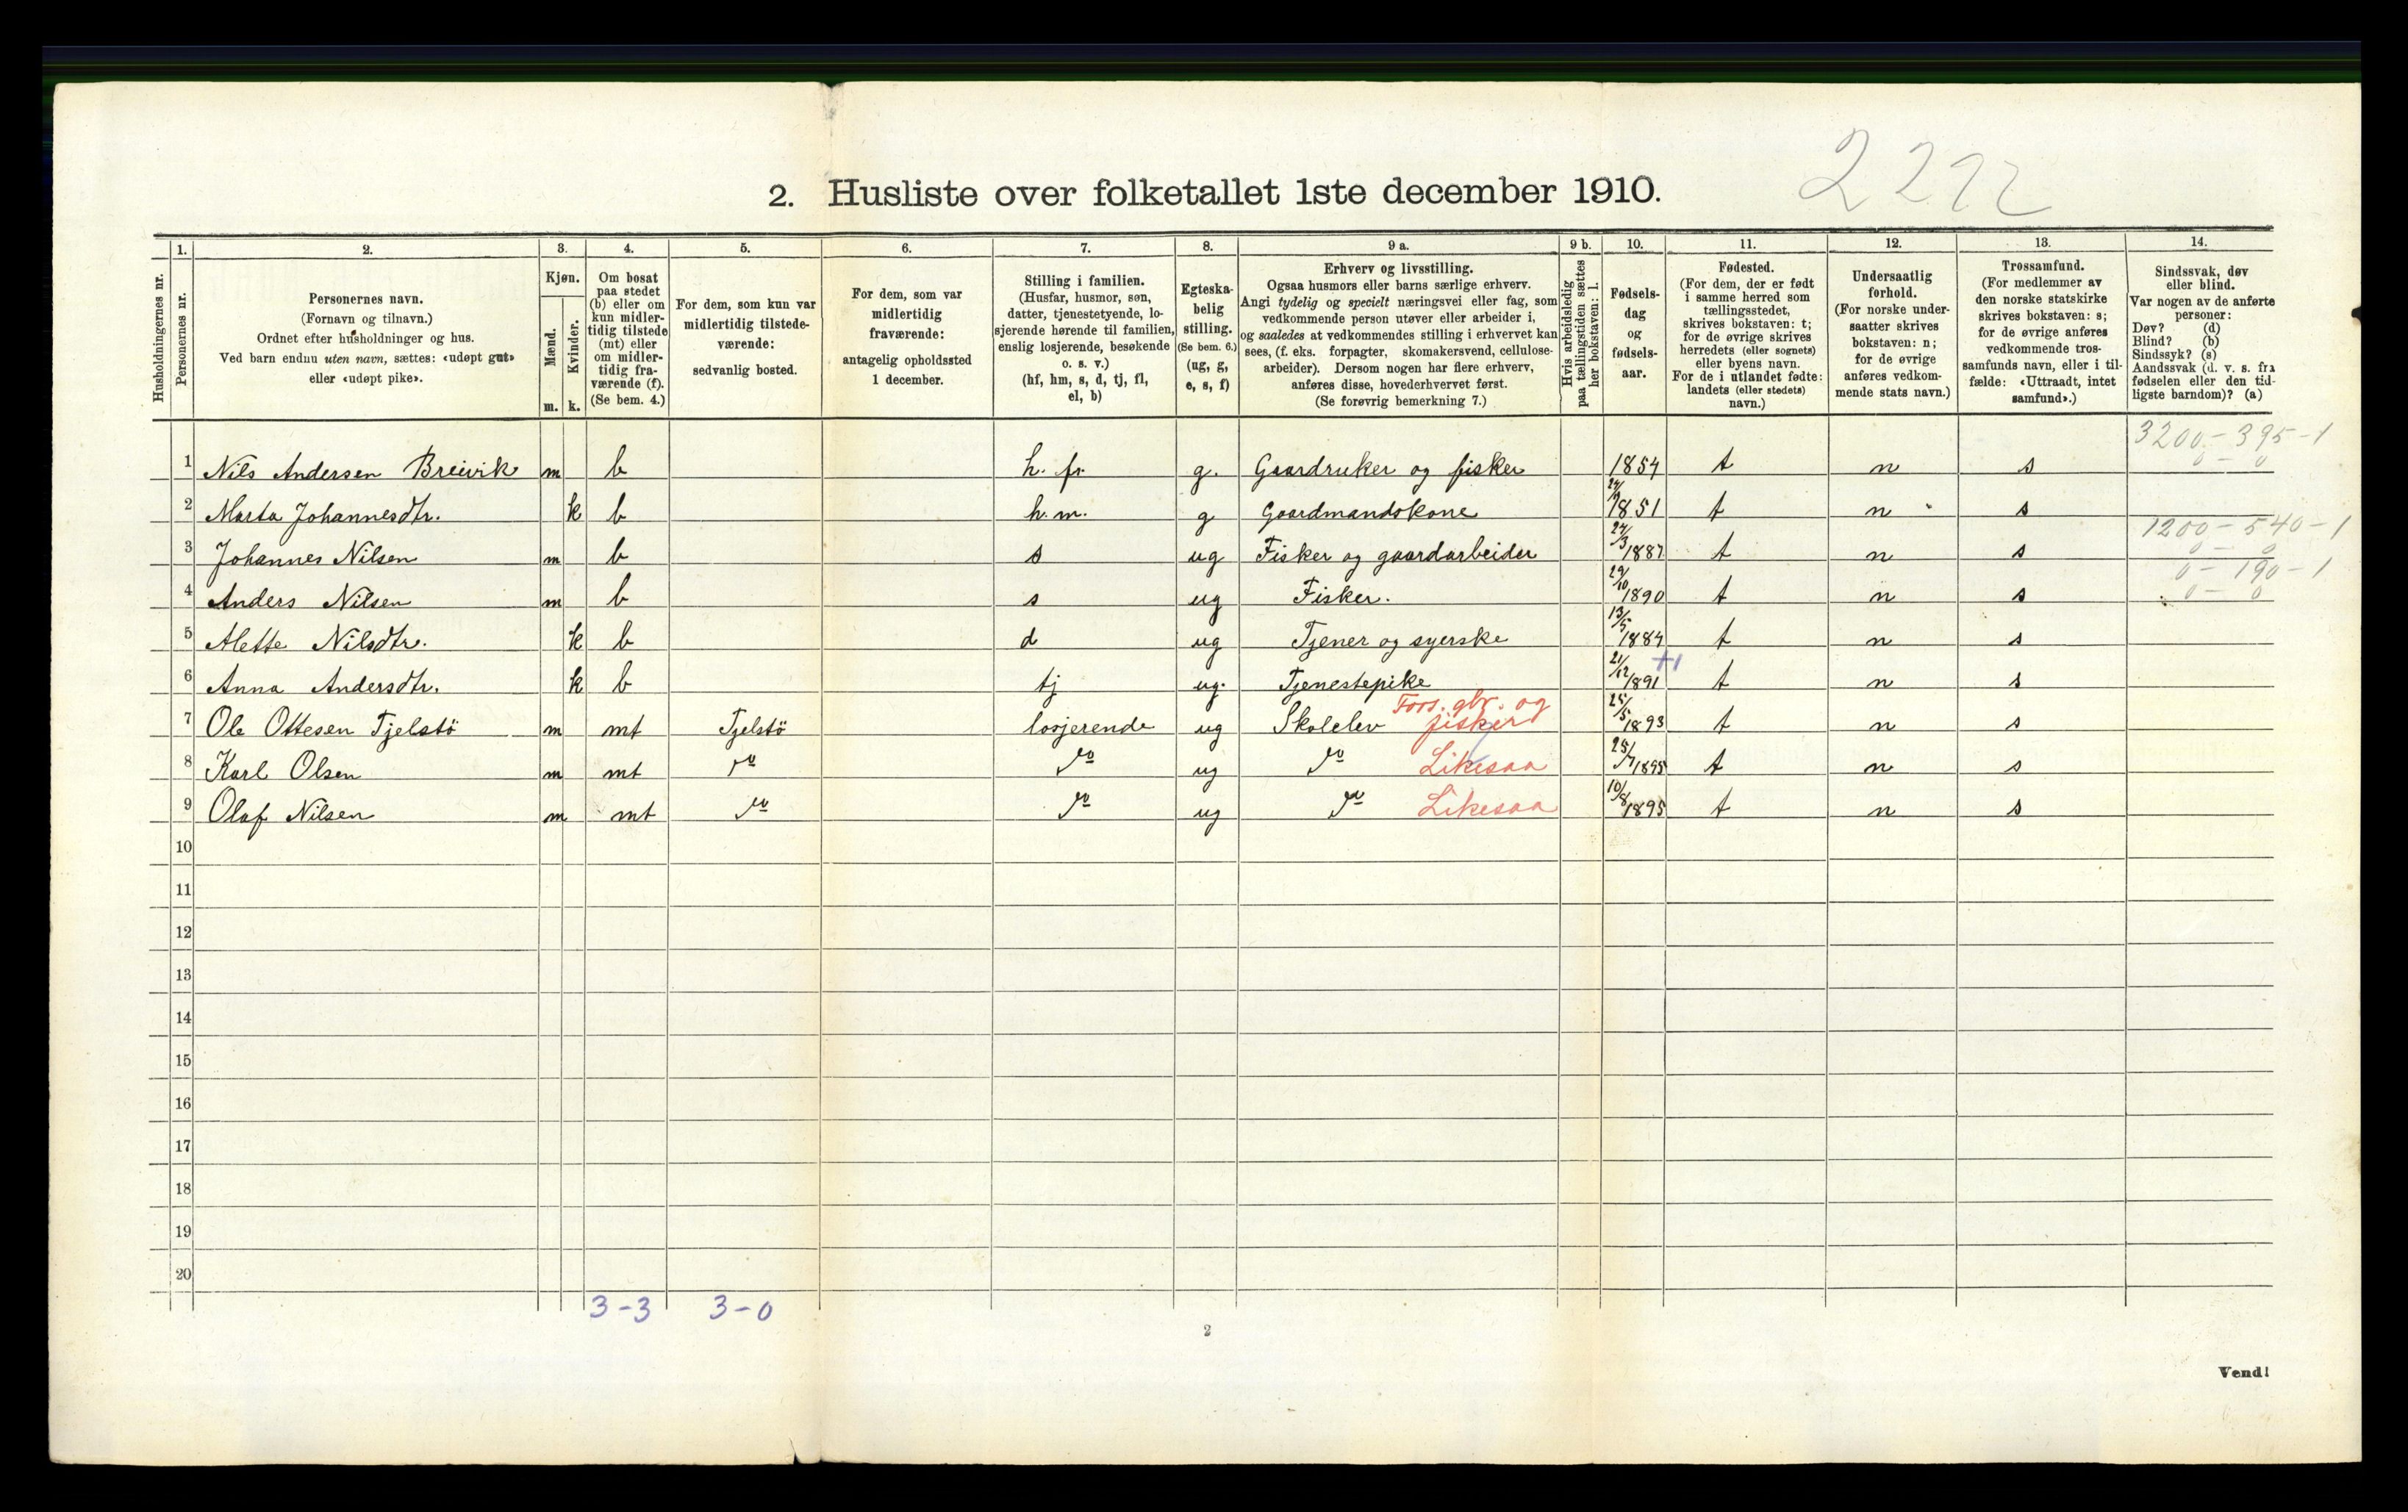 2212
2. Husliste over folketallet 1ste december 1910.
Husholdningernes nr.
1.
Personernes nr.
2.
Personernes navn.
(Fornavn og tilnavn.)
Ordnet efter husholdninger og hus.
Ved barn endnu uten navn, sættes: «udøpt gut»
eller «udøpt pike».
3.
Kjøn.
Mænd.
Kvinder.
m. k.
4.
Om bosat
paa stedet
(b) eller om
kun midler-
tidig tilstede
(mt) eller
om midler-
tidig fra-
værende (f).
(Se bem. 4.)
5.
For dem, som kun var
midlertidig tilstede-
værende:
sedvanlig bosted.
6.
For dem, som var
midlertidig
fraværende:
antagelig opholdssted
1 december.
7.
Stilling i familien.
(Husfar, husmor, søn,
datter, tjenestetyende, lo-
sjerende hørende til familien,
enslig losjerende, besøkende
o. s. v.)
(hf, hm, s, d, tj, fl,
el, b)
8.
Egteska-
belig
stilling.
(Se bem. 6.)
(ug, g,
e, s, f)
9 a.
Erhverv og livsstilling.
Ogsaa husmors eller barns særlige erhverv.
Angi tydelig og specielt næringsvei eller fag, som
vedkommende person utøver eller arbeider i,
og saaledes at vedkommendes stilling i erhvervet kan
sees, (f. eks. forpagter, skomakersvend, cellulose-
arbeider). Dersom nogen har flere erhverv,
anføres disse, hovederhvervet først.
(Se forøvrig bemerkning 7.)
9 b.
Hvis arbeidsledig
paa tællingstiden sættes
her bokstaven: l.
10.
Fødsels-
dag
og
fødsels-
aar.
11.
Fødested.
(For dem, der er født
i samme herred som
tællingsstedet,
skrives bokstaven: t;
for de øvrige skrives
herredets (eller sognets)
eller byens navn.
For de i utlandet fødte:
landets (eller stedets)
navn.)
12.
Undersaatlig
forhold.
(For norske under-
saatter skrives
bokstaven: n;
for de øvrige
anføres vedkom-
mende stats navn.)
13.
Trossamfund.
(For medlemmer av
den norske statskirke
skrives bokstaven: s;
for de øvrige anføres
vedkommende tros-
samfunds navn, eller i til-
fælde: «Uttraadt, intet
samfund».)
14.
Sindssvak, døv
eller blind.
Var nogen av de anførte
personer:
Døv? (d)
Blind? (b)
Sindssyk? (s)
Aandssvak (d. v. s. fra
fødselen eller den tid-
ligste barndom)? (a)
3200 - 395 - 1
1 Nils Andersen Breivik m b h. fr. g. Gaardruker og fisker 1854 t n s 0 - 0
2 Marta Johannesdtr. k b h. m. g Gaardmandskone 1851 t n s
1200 - 540 - 1
3 Johannes Nilsen m b s ug Fisker og gaardarbeider 27/3 1887 t n s 0 - 0
0 - 190 - 1
4 Anders Nilsen m b s ug Fisker. 29/10 1890 t n s 0 - 0
5 Alette Nilsdtr. k b d ug Tjener og syerske 13/5 1884 t n s
+1
6 Anna Andersdtr. k b tj ug. Tjenestepike 21/12 1891 t n s
Fors. gbr. og
7 Ole Ottesen Tjelstö m mt Tjelstö losjerende ug Skolelev fisker 25/5 1893 t n s
8 Karl Olsen m mt do do ug do Likesaa 1895 t n s
9 Olaf Nilsen m mt do do ug do Likesaa 10/8 1895 t n s
10
11
12
13
14
15
16
17
18
19
20
3-3 3-0
2
Vend!